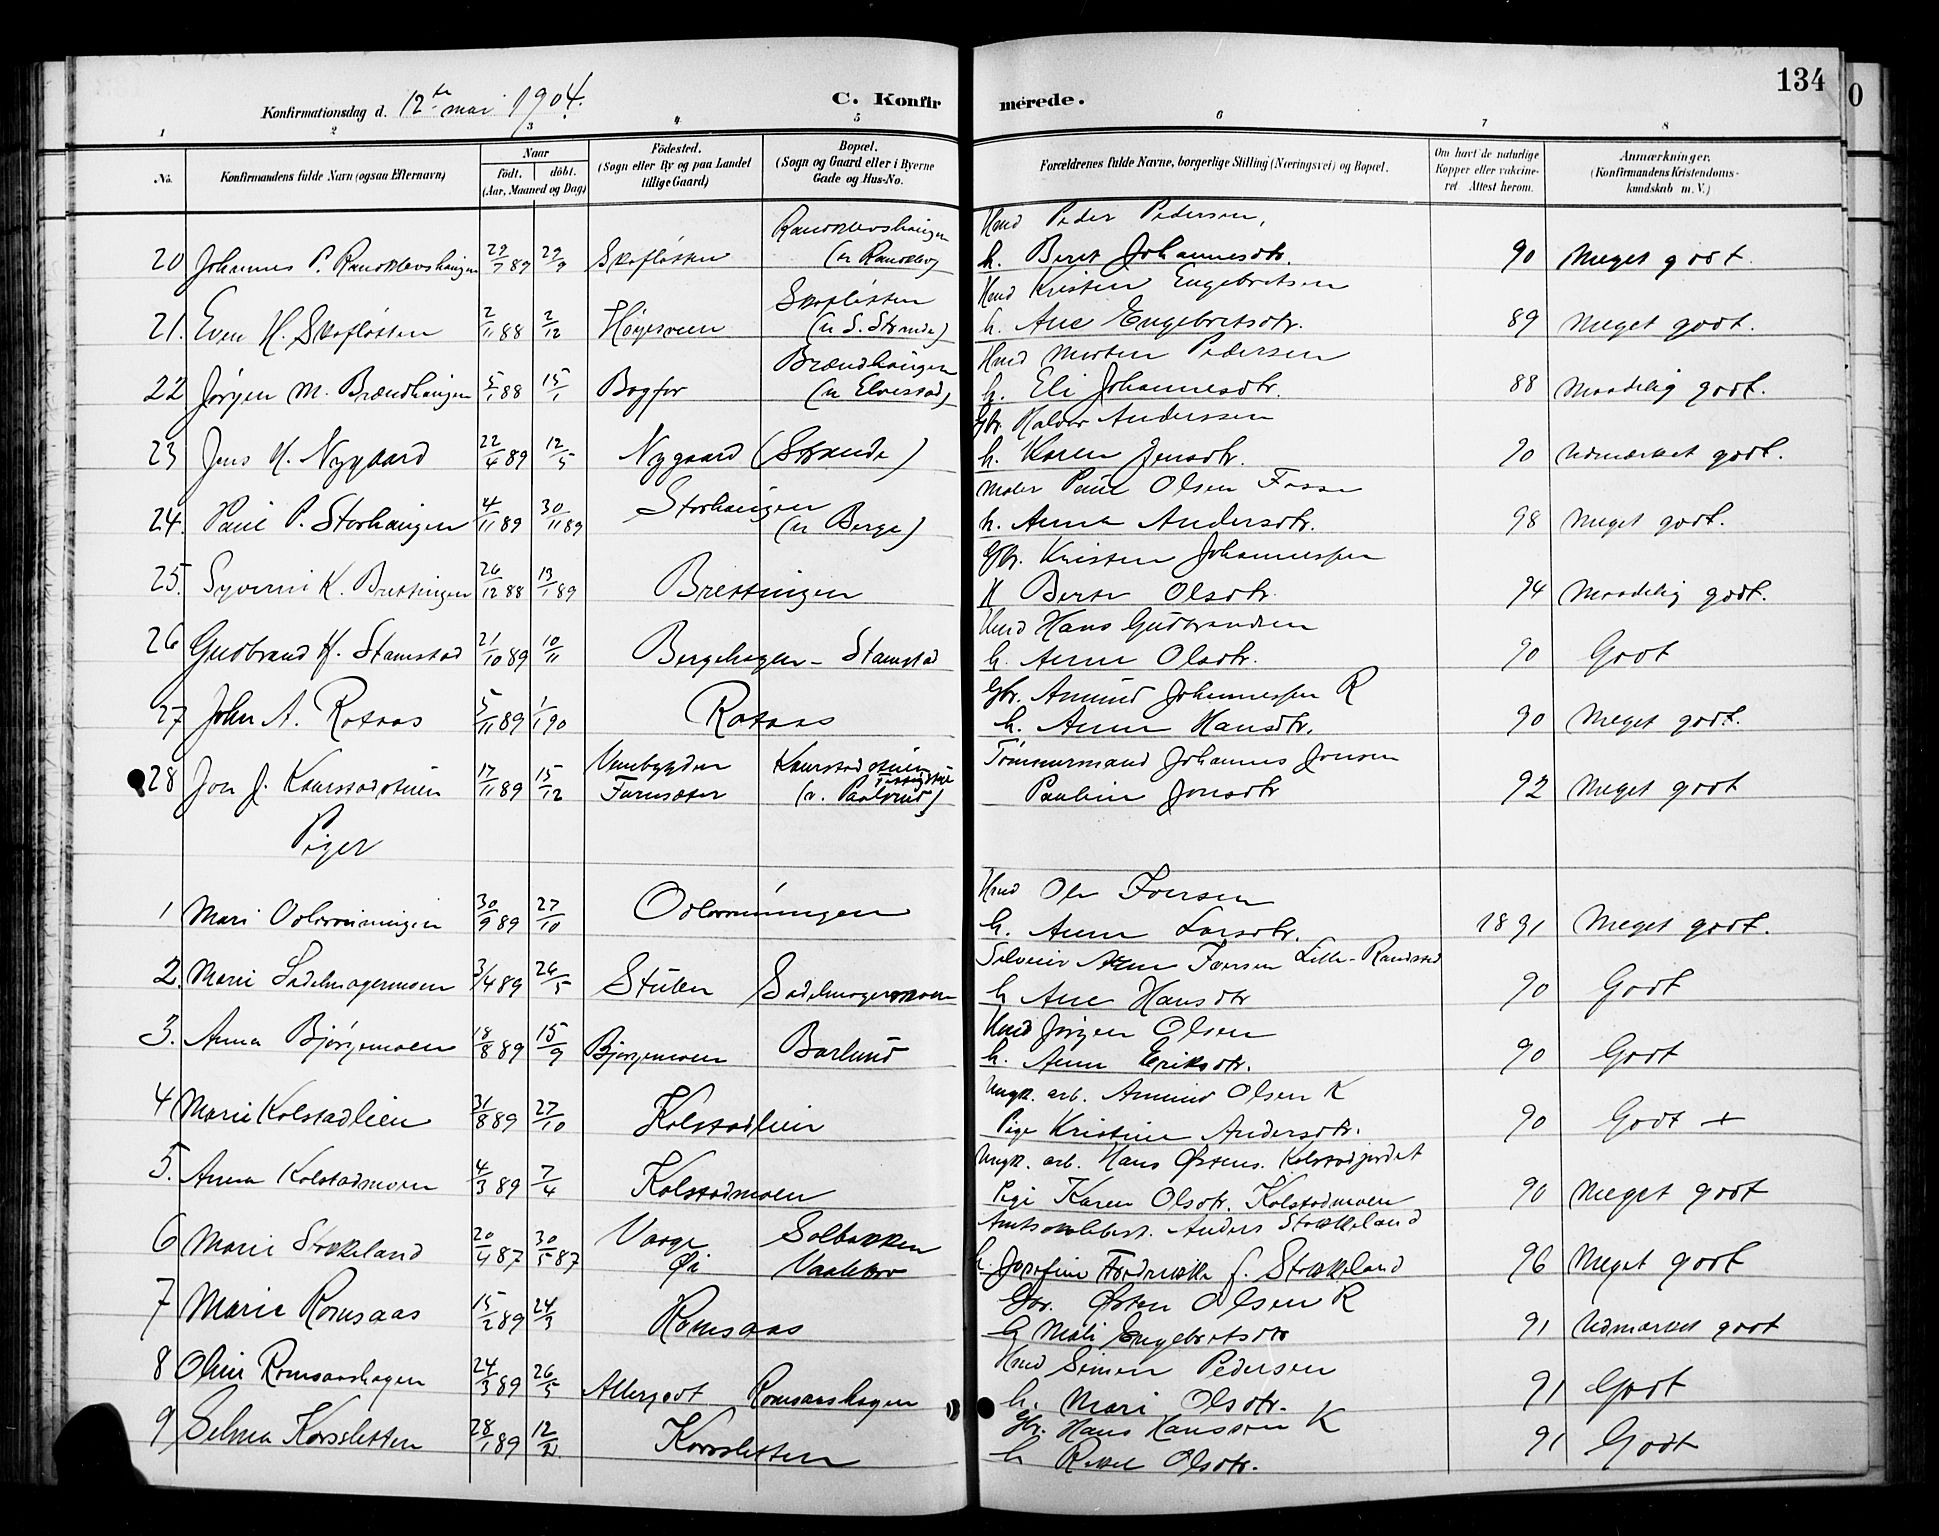 134
Konfirmationsdag d. 12te mai 1904. C. Konfirmerede.
1 2 3 4 5 6 7 8
No. Konfirmandens fulde Navn (ogsaa Efternavn) Naar födt. döbt. (Aar, Maaned og Dag) Födested. (Sogn eller By og paa Landet tillige Gaard) Bopæl. (Sogn og Gaard eller i Byerne Gade og Hus-No. Forældrenes fulde Navne, borgerlige Stilling (Næringsvei) og Bopæl. Om havt de naturlige Kopper eller vakcineret Attest herom. Anmærkninger. (Konfirmandens Kristendomskundskab m. V.)
Randklevshaugen Hmd Peder Pedersen,
20 Johannes P. Randklevshaugen 29/7 89 29/9 Skofløkken (u Randklev) h. Berit Johannesdtr. 90 Meget godt.
Skofløkken Hmd Kristen Engebretsen
21. Even K. Skofløkken 2/11 88 2/12 Høyesveen (u S. Strande) h. Ane Engebretsdtr. 89 Meget godt.
Brændhaugen Hmd Morten Pedersen
22 Jørgen M. Brændhaugen 5/1 88 15/1 Bogfor (u Elvestad) h. Eli Johannesdtr. 88 Maadelig godt.
Gbr. Halvor Anderssen
23 Jens H. Nygaard 22/4 89 12/5 Nygaard (Strande) h. Karen Jensdtr. 90 Udmærket godt.
Storhaugen Maler Paul Olsen Fosse
24. Paul P. Storhaugen 4/11 89 30/11 89 (u Berge) h. Anna Andersdtr. 98 Meget godt.
Gbr. Kristen Johannessen
25. Syverin K. Brettingen 26/12 88 13/1 89 Brettingen H Berte Olsdtr. 94 Maadelig godt.
Hmd Hans Gudbrandsen
26 Gudbrand H. Stamstad 21/10 89 10/11 Bergehagen - Stamstad h. Anne Olsdtr. 90 Godt
Gbr. Amund Johannessen R
27 John A. Rotaas 5/11 89 1/1 90 Rotaas h. Anne Hansdtr. 90 Meget godt.
Venebygden Kaurstadstuen Tømmermand Johannes Jonsen
28 Jon J. Kaurstadstuen 17/11 89 15/12 Furusæter Pauline Jonsdtr 92 Meget godt
Piger
Hmd Ole Iversen
1 Mari Odlorvningen 30/9 89 27/10 Odlorvningen h. Anne Larsdtr. 1891 Meget godt.
Iversen Lille-Randstad
2. Marie Sadelmagermoen 3/4 89 26/5 Stulen Sadelmagermoen h Ane Hansdtr 90 Godt
Hmd Jørgen Olsen
3. Anna Bjørgemoen 18/8 89 15/9 Bjørgemoen Barlund h. Anne Eriksdtr. 90 Godt
Ungk. arb. Amund Olsen K
4 Marie Kolstadlien 31/8 89 27/10 Kolstadlien Pige Kristine Andersdtr. 90 Godt +
Ungk. arb. Hans Østens. Kolstadjordet
5. Anna Kolstadmoen 4/3 89 7/4 Kolstadmoen Pige Karen Olsdtr. Kolstadmoen 90 Meget godt
Vaage Solbakken Anders Stokkeland
6 Marie Stokkeland 20/4 87 30/5 87 Øi Vaalebro h. Josefine Fredrikke f. Stokkeland 96 Meget godt
Gbr. Østen Olsen R
7 Marie Romsaas 15/2 89 24/3 Romsaas h Mali Engebretsdtr 91 Udmærket godt
Hmd Simen Pedersen
8 Oline Romsaashagen 24/3 89 26/5 Allergodt Romsaashagen h. Mari Olsdtr. 91 Godt
Gbr. Hans Hanssen K
9 Selma Korsletten 28/1 89 12/2 Korsletten h Rikel Olsdtr. 91 Godt